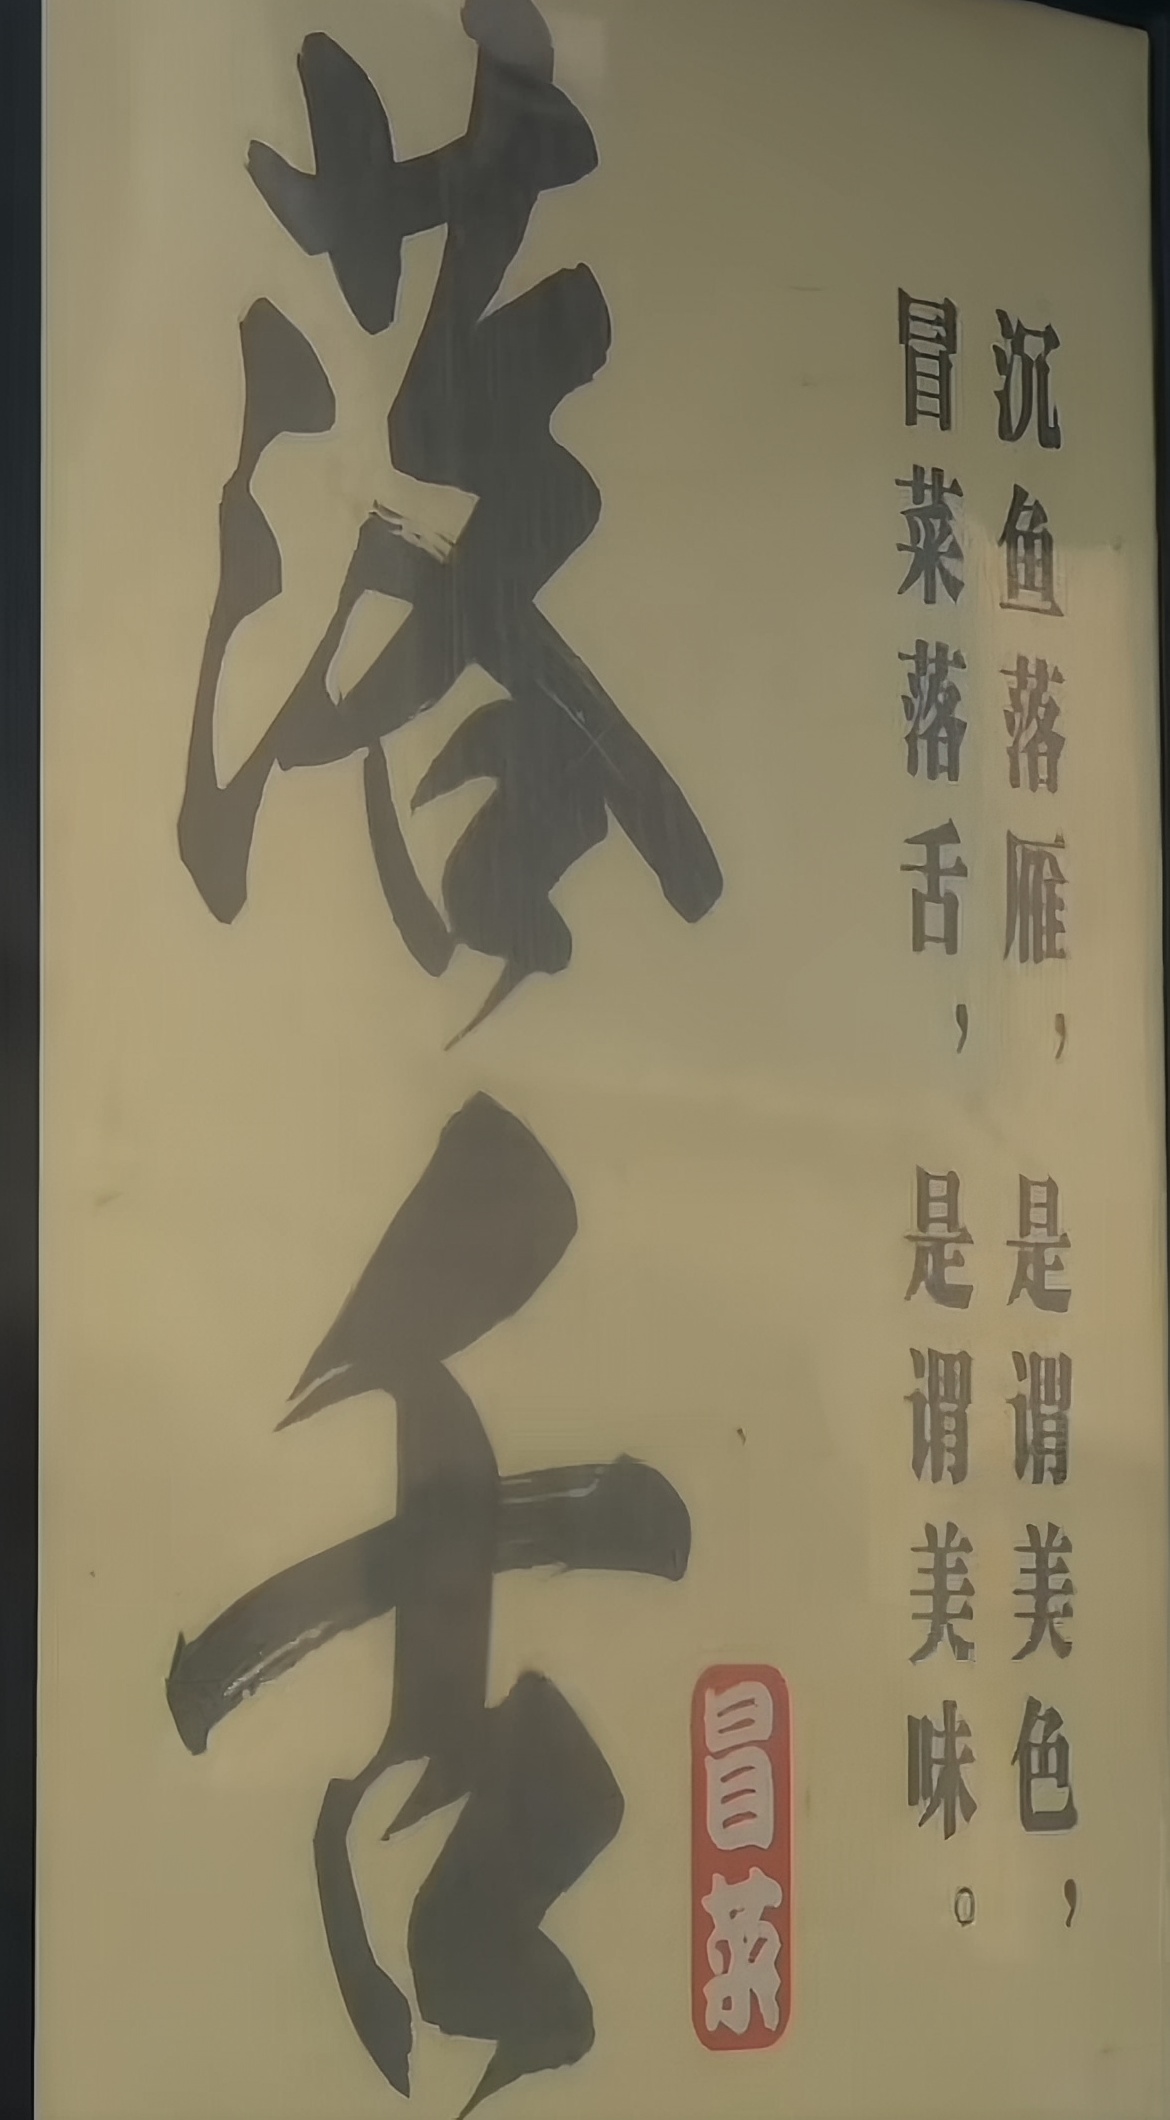 沉鱼落雁，是谓美色，
冒菜落舌，是谓美味。
冒菜
落舌